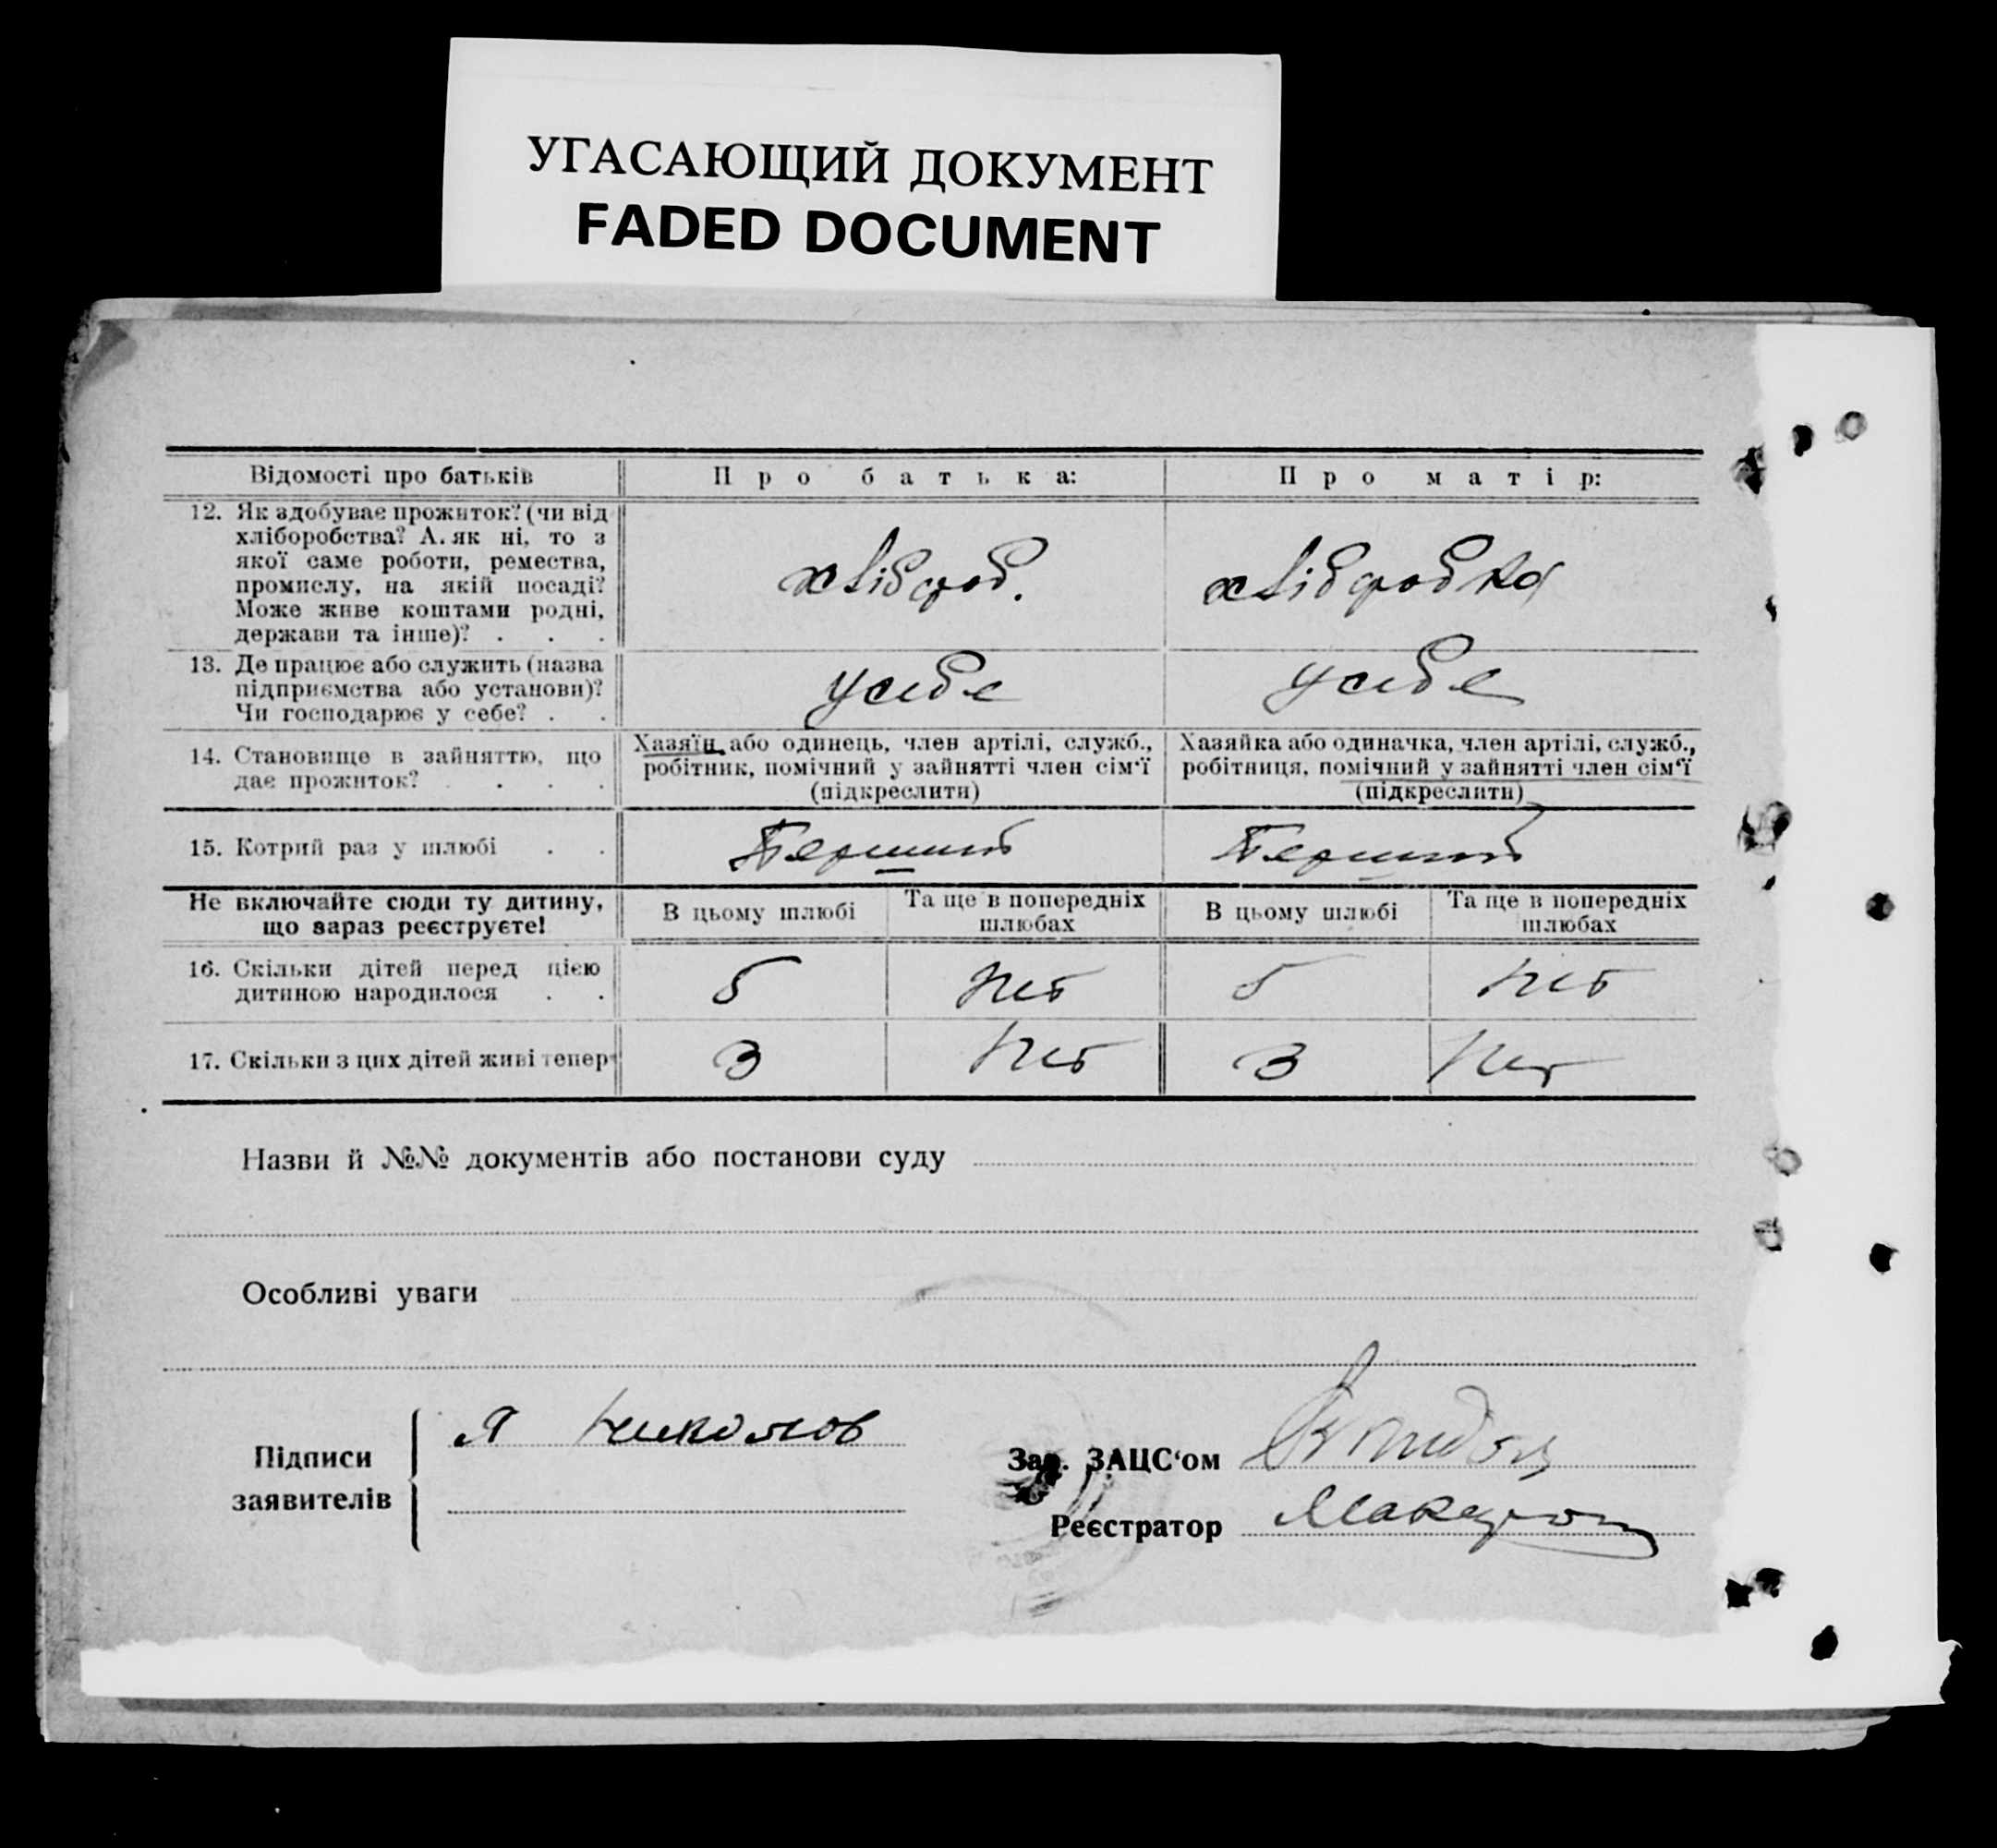 УГАСАЮЩИЙ ДОКУМЕНТ
FADED DOCUMENT
Відомості про батьків
Про батька:
Про матір:
12. Як здобуває прожиток? (чи від
хліборобства? А як ні, то з
якої саме роботи, ремества,
промислу, на якій посаді?
Може живе коштами родні,
держави та інше)? . . .
хлібороб.
хліборобка
13. Де працює або служить (назва
підприємства або установи)?
Чи господарює у себе? . .
у себе
у себе
14. Становище в зайняттю, що
дає прожиток? . . . .
Хазяїн або одинець, член артілі, служб.,
робітник, помічний у зайнятті член сім'ї
(підкреслити)
Хазяйка або одиначка, член артілі, служб.,
робітниця, помічний у зайнятті член сім'ї
(підкреслити)
15. Котрий раз у шлюбі . .
Перший
Перший
Не включайте сюди ту дитину,
що зараз реєструєте!
В цьому шлюбі
Та ще в попередніх
шлюбах
В цьому шлюбі
Та ще в попередніх
шлюбах
16. Скільки дітей перед цією
дитиною народилося . .
5
Нет
5
Нет
17. Скільки з цих дітей живі тепер
3
Нет
3
Нет
Назви й №№ документів або постанови суду
Особливі уваги
Підписи
заявителів
Я Николов
Зав. ЗАЦС'ом
Реєстратор